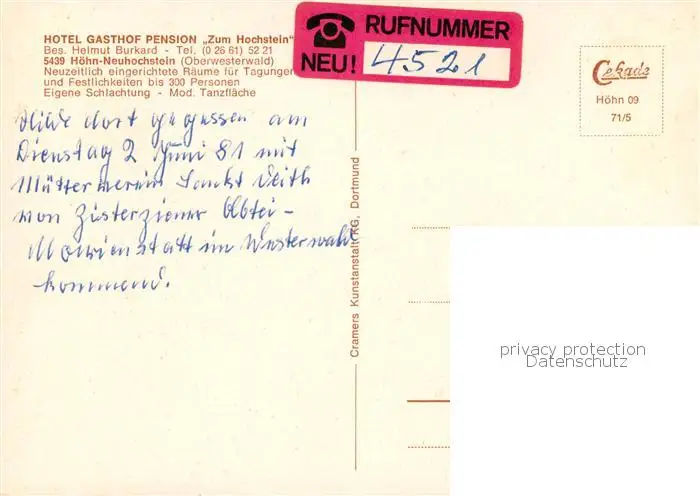 HOTEL GASTHOF PENSION „Zum Hochstein"
Bes. Helmut Burkard - Tel. (0 26 61) 52 21
5439 Höhn-Neuhochstein (Oberwesterwald)
Neuzeitlich eingerichtete Räume für Tagungen
und Festlichkeiten bis 300 Personen
Eigene Schlachtung - Mod. Tanzfläche
RUFNUMMER
NEU! 4521
Cekade
Höhn 09
71/5
Hilde dort gegessen am
Dienstag 2 Juni 81 mit
Mütterverein Sankt Veith
von Zisterzienser Abtei-
Marienstatt im Westerwald
kommend.
Cramers Kunstanstalt KG, Dortmund
privacy protection
Datenschutz